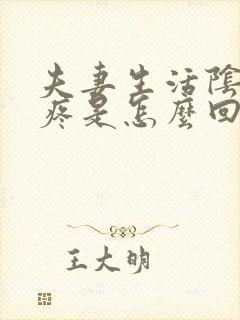 夫妻生活陰
疼是怎麼回
王大明